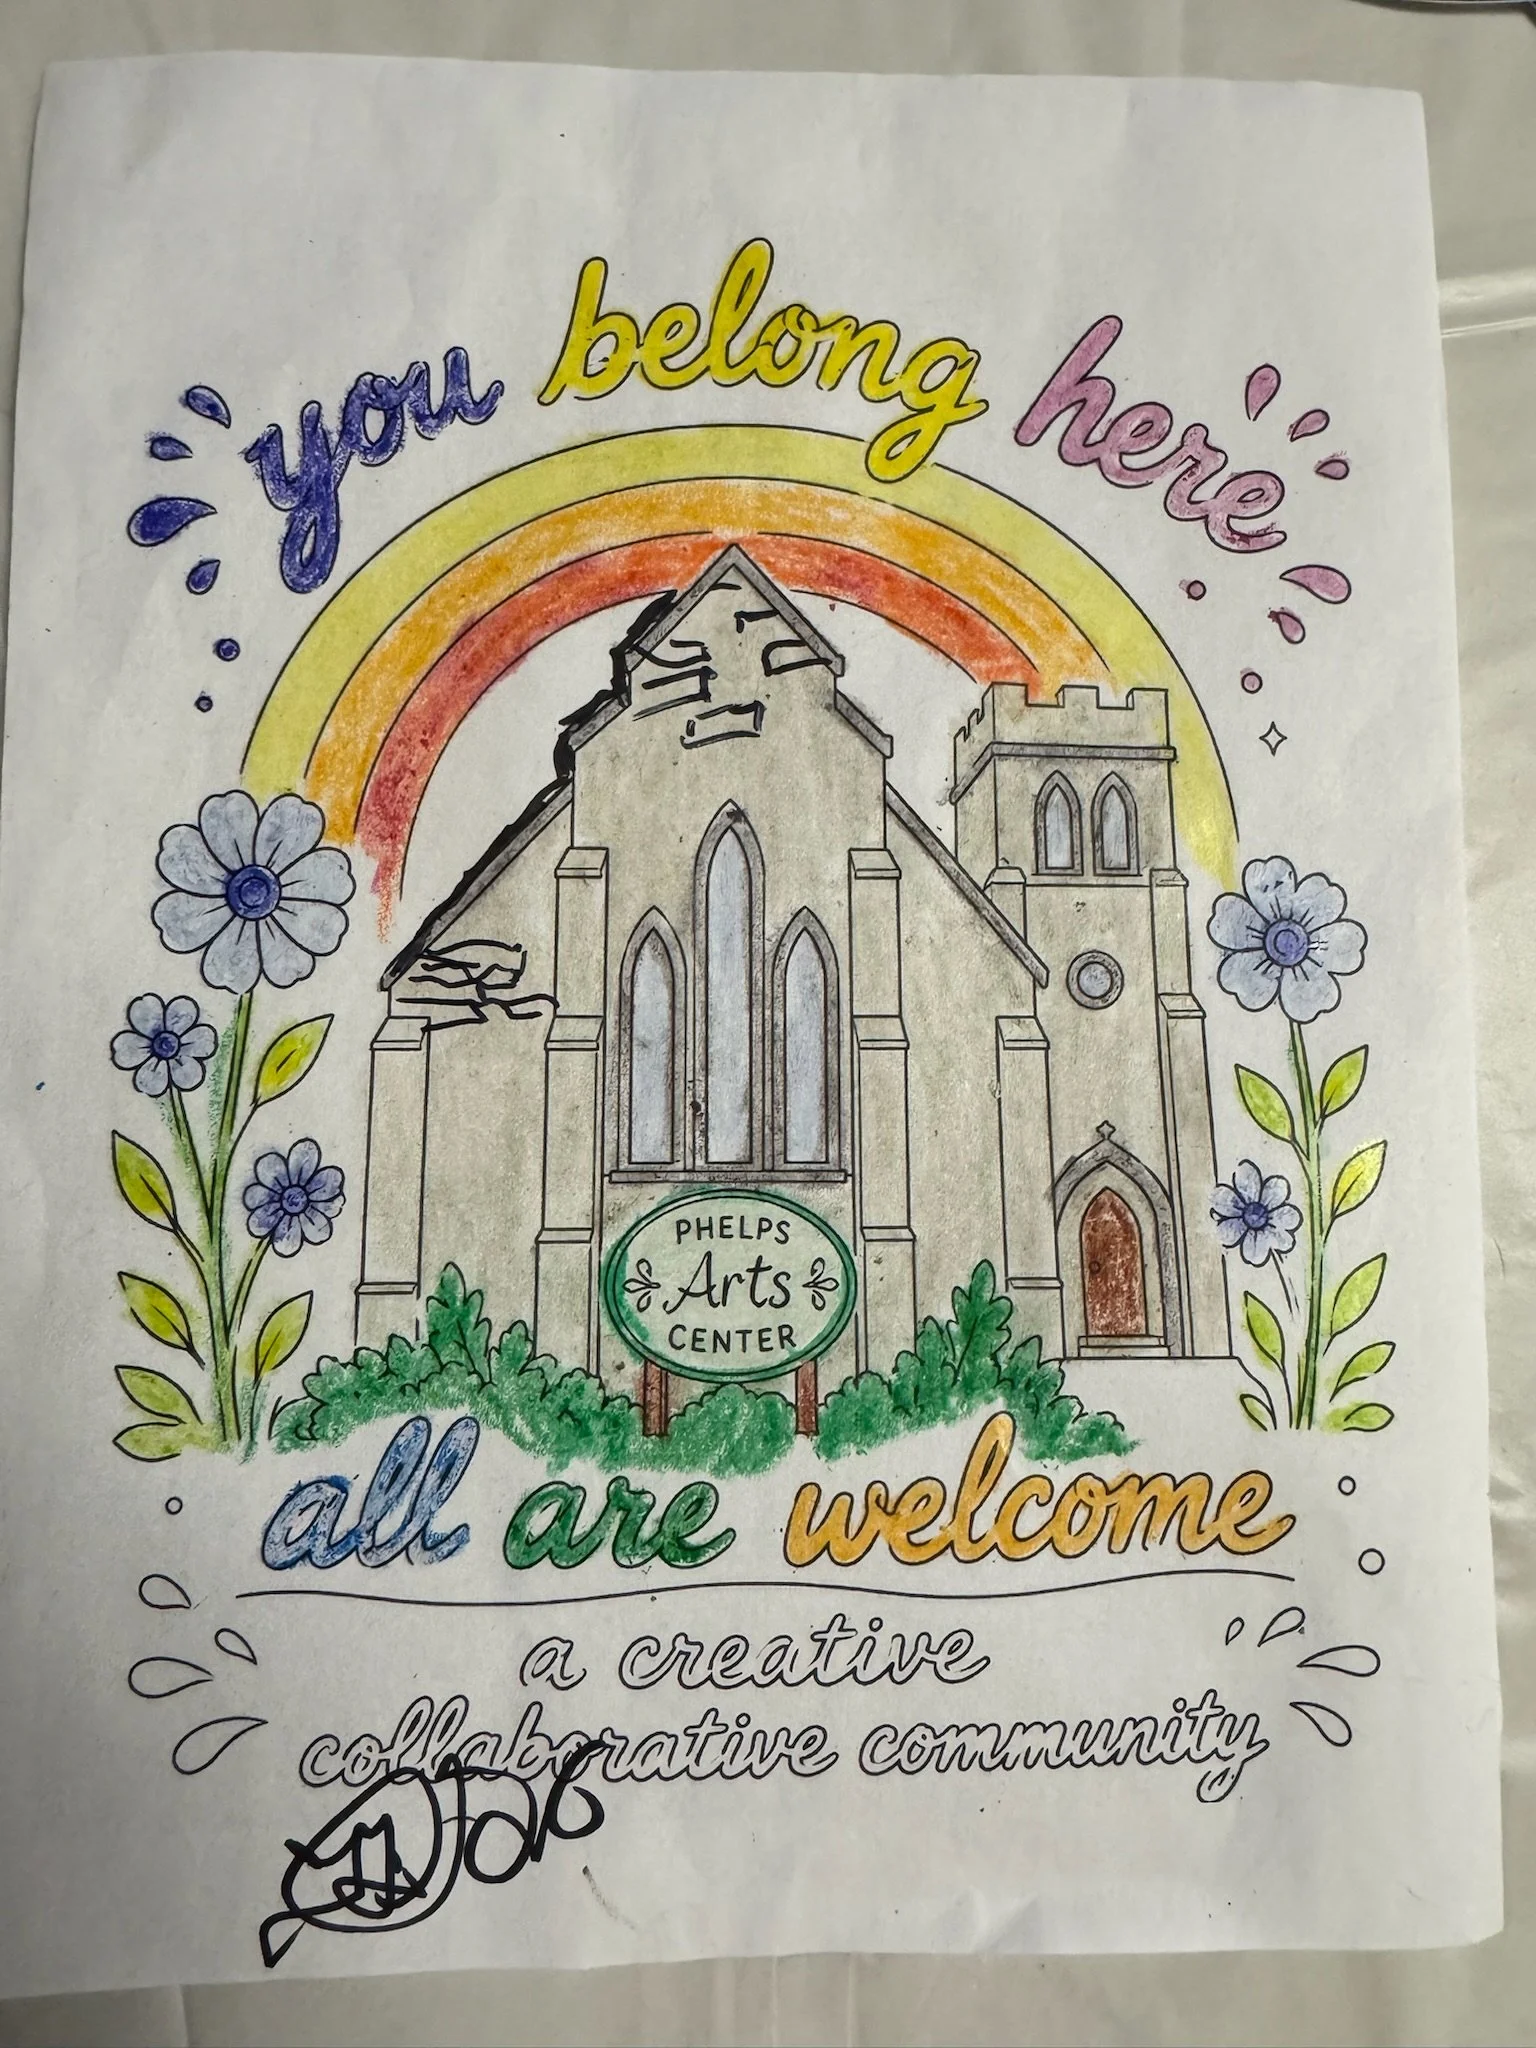 you belong here
PHELPS
Arts
CENTER
all are welcome
a creative
collaborative community